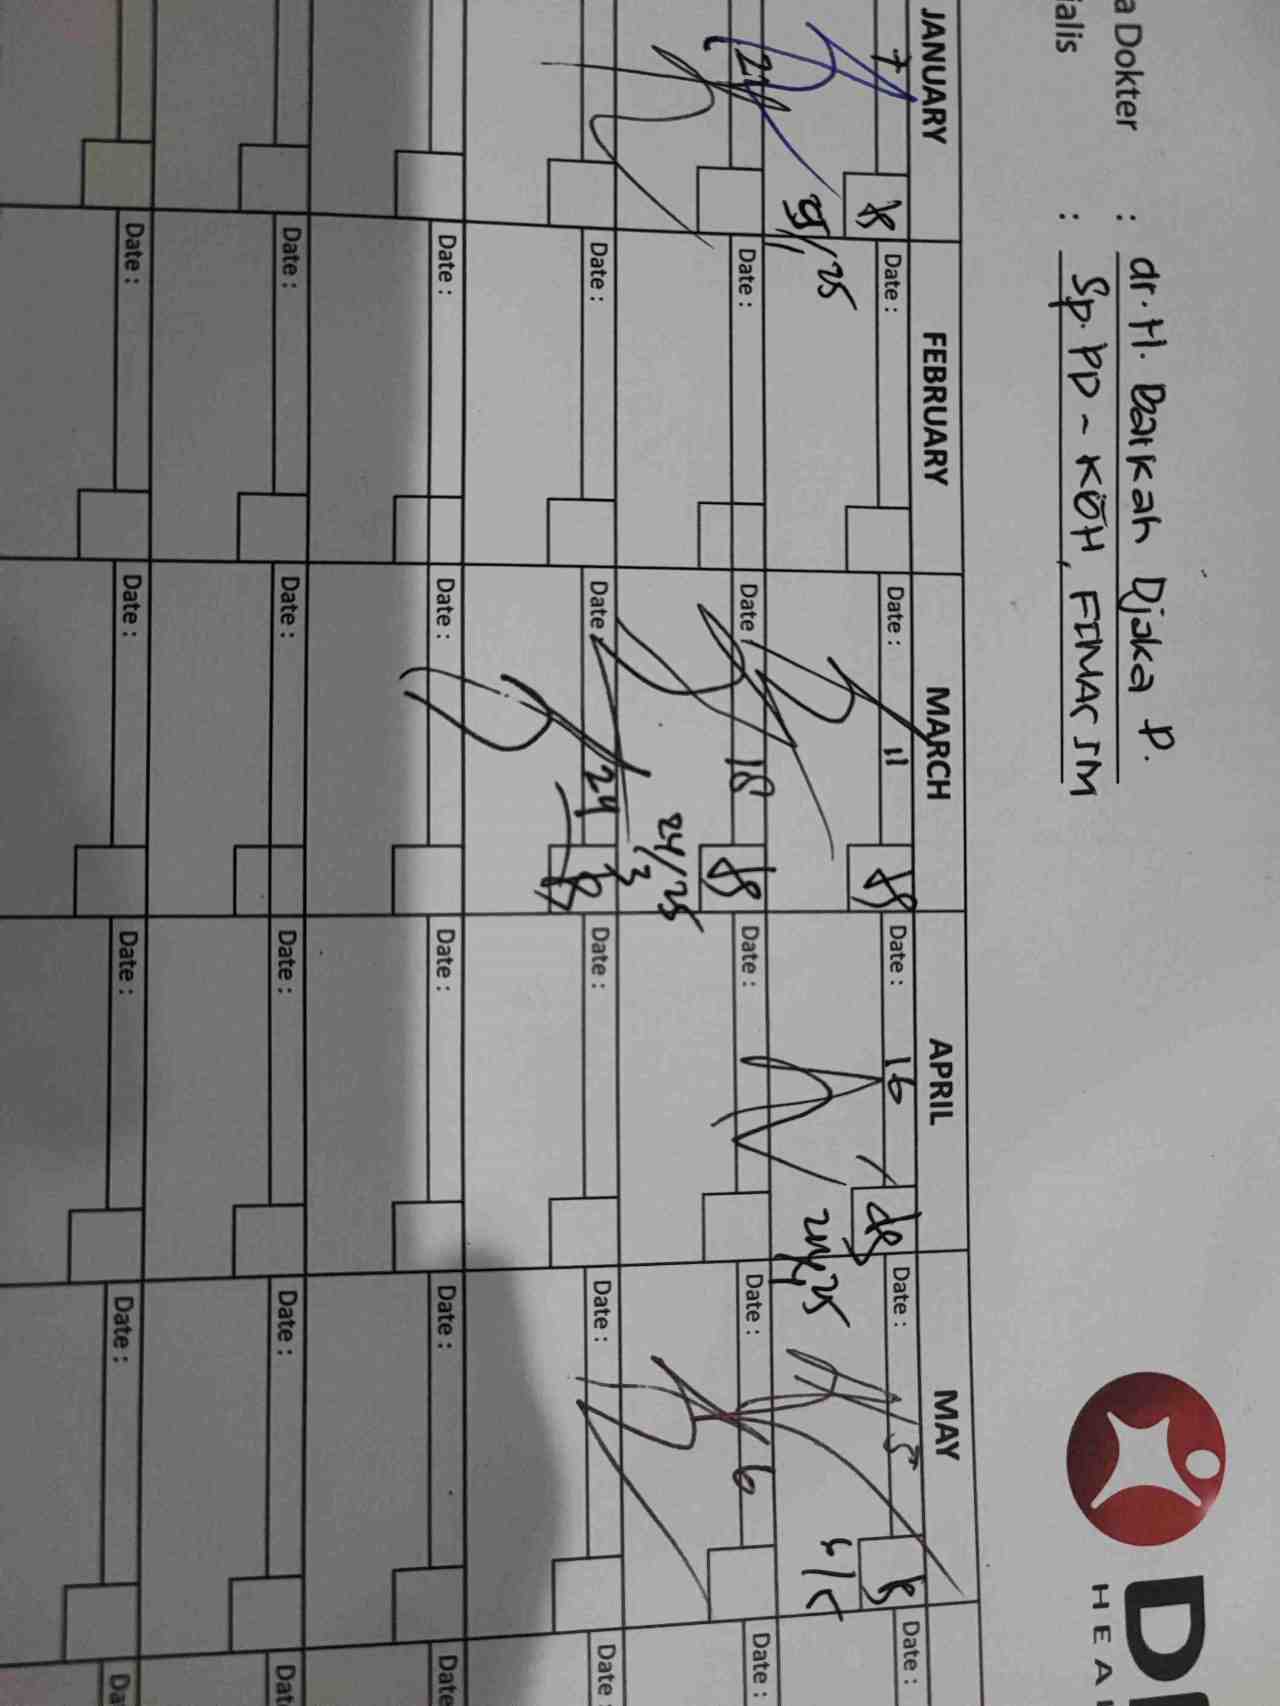 a Dokter : dr. H. Barkah Djaka P.
ialis : Sp. PD - KOH, FINASIM
D
HEA
JANUARY FEBRUARY MARCH APRIL MAY
7 Date : Date : 11 Date : 16 Date : 5 Date :
/25 24/4/25 6/5
24 Date : Date : 18 Date : Date : 6 Date :
24/3/25
Date : Date : 24 Date : Date : Date :
Date : Date : Date : Date : Date
Date : Date : Date : Date : Dat
Date : Date : Date : Date : Da